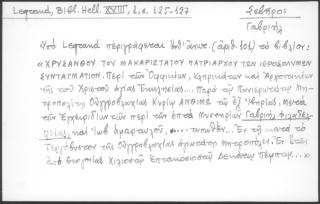 Legrand, Bibl. Hell. XVIII, 1, σ. 125-127
Σεβῆρος
Γαβριήλ
Ὑπὸ Legrand περιγράφεται ὑπ' ἀριθ. 101 τὸ βιβλίον:
«ΧΡΥΣΑΝΘΟΥ ΤΟΥ ΜΑΚΑΡΙΩΤΑΤΟΥ ΠΑΤΡΙΑΡΧΟΥ ΤΩΝ ΙΕΡΟΣΟΛΥΜΩΝ
ΣΥΝΤΑΓΜΑΤΙΟΝ. Περὶ τῶν Ὀφφικίων, Κληρικάτων καὶ Ἀρχοντικίων
τῆς τοῦ Χριστοῦ ἁγίας Ἐκκλησίας... Παρὰ τοῦ Πανιερωτάτου Μη-
τροπολίτου Οὐγγροβλαχίας Κυρίου ΑΝΘΙΜΟΥ τοῦ ἐξ Ἰβηρίας, μετὰ
τῶν Ἐγχειριδίων τῶν περὶ τῶν ἑπτὰ Μυστηρίων Γαβριὴλ Φιλαδελ-
φείας, καὶ Ἰὼβ ἁμαρτωλοῦ, ..... τυπωθέν... Ἐν τῇ κατὰ τὸ
Τεργόβυστον τῆς Οὐγγροβλαχίας ἁγιωτάτῃ Μητροπόλει. Ἐν ἔτει
ἀπὸ Θεογονίας Χιλιοστῷ Ἑπτακοσιοστῷ Δεκάτῳ Πέμπτῳ...»